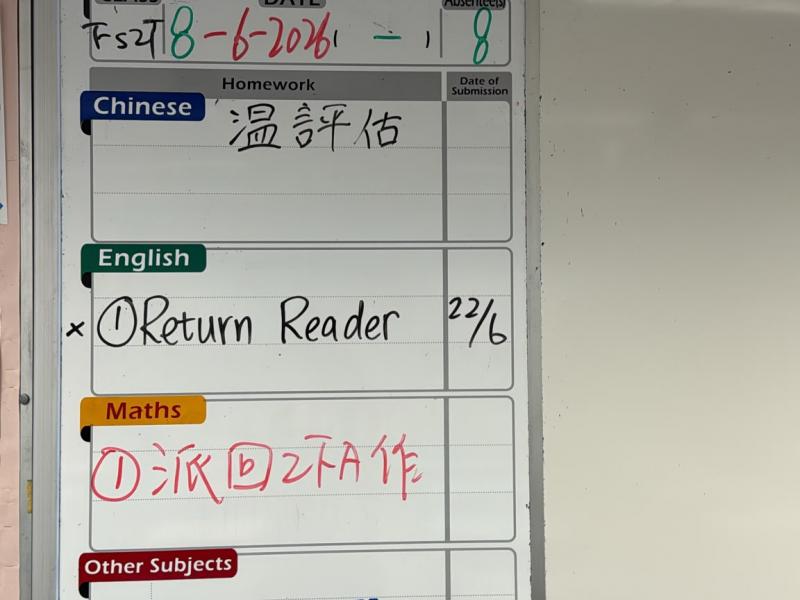 DATE
Absentee(s)
8-6-2026 ( - ) 8
Homework
Date of Submission
Chinese
温評估
English
× ①Return Reader 22/6
Maths
①派回2下A作
Other Subjects